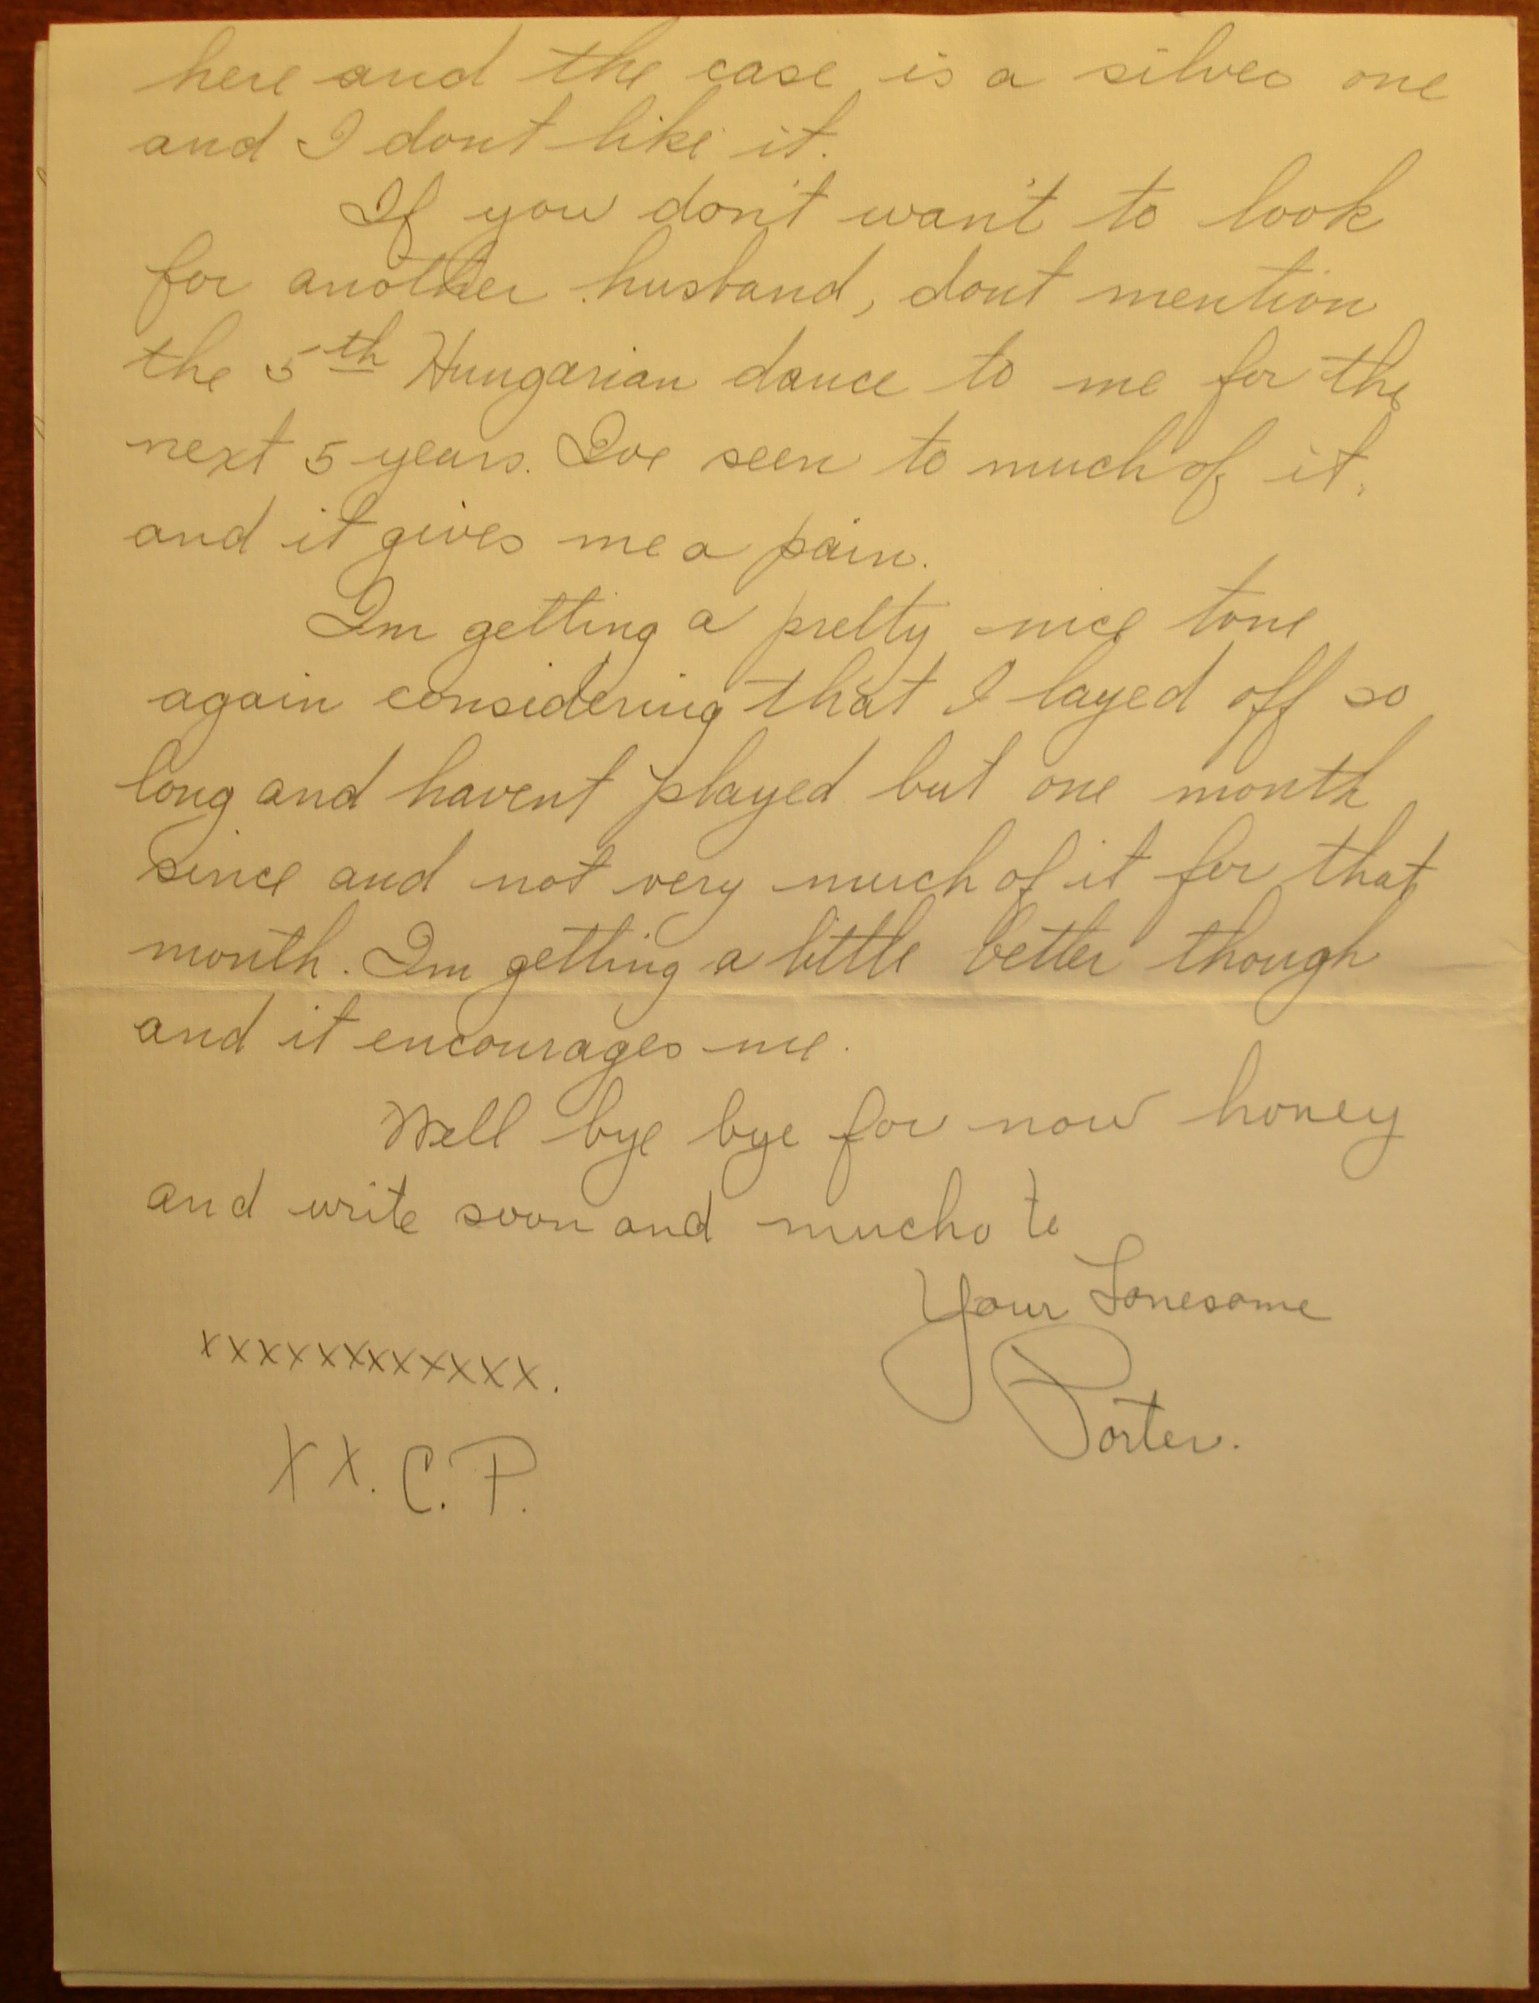 here and the case is a silver one
and I dont like it.
If you don't wan't to look
for another husband, dont mention
the 5th Hungarian dance to me for the
next 5 years. Ive seen to much of it,
and it gives me a pain.
Im getting a pretty nice tone
again considering that I layed off so
long and havent played but one month
since and not very much of it for that
month. Im getting a little better though
and it encourages me.
Well bye bye for now honey
and write soon and mucho to
Your Lonesome
Porter.
xxxxxxxxxxxx.
XX. C.P.